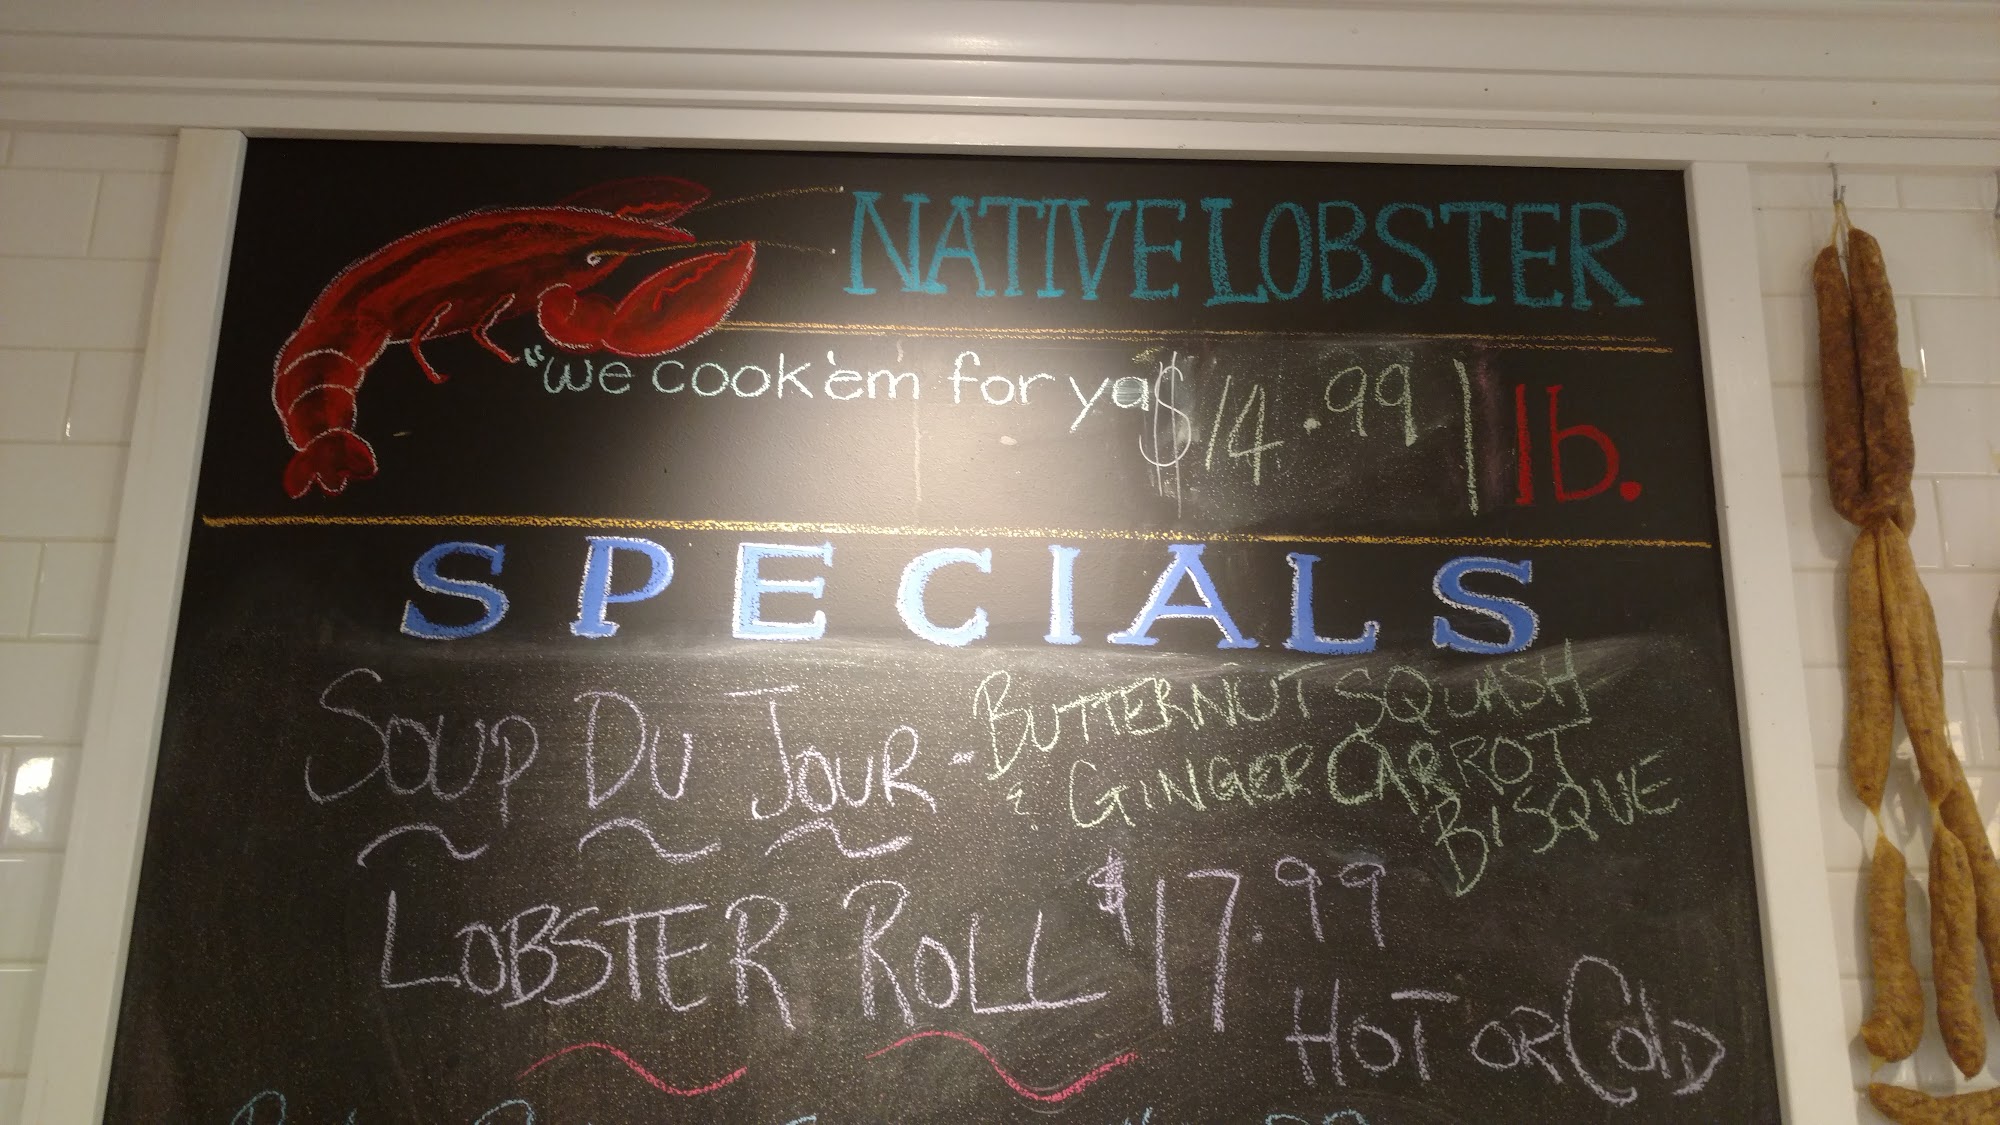 NATIVE LOBSTER
"we cook'em for ya $14.99 | lb.
SPECIALS
SOUP DU JOUR - BUTTERNUT SQUASH
& GINGER CARROT
BISQUE
LOBSTER ROLL $17.99
HOT OR COlD